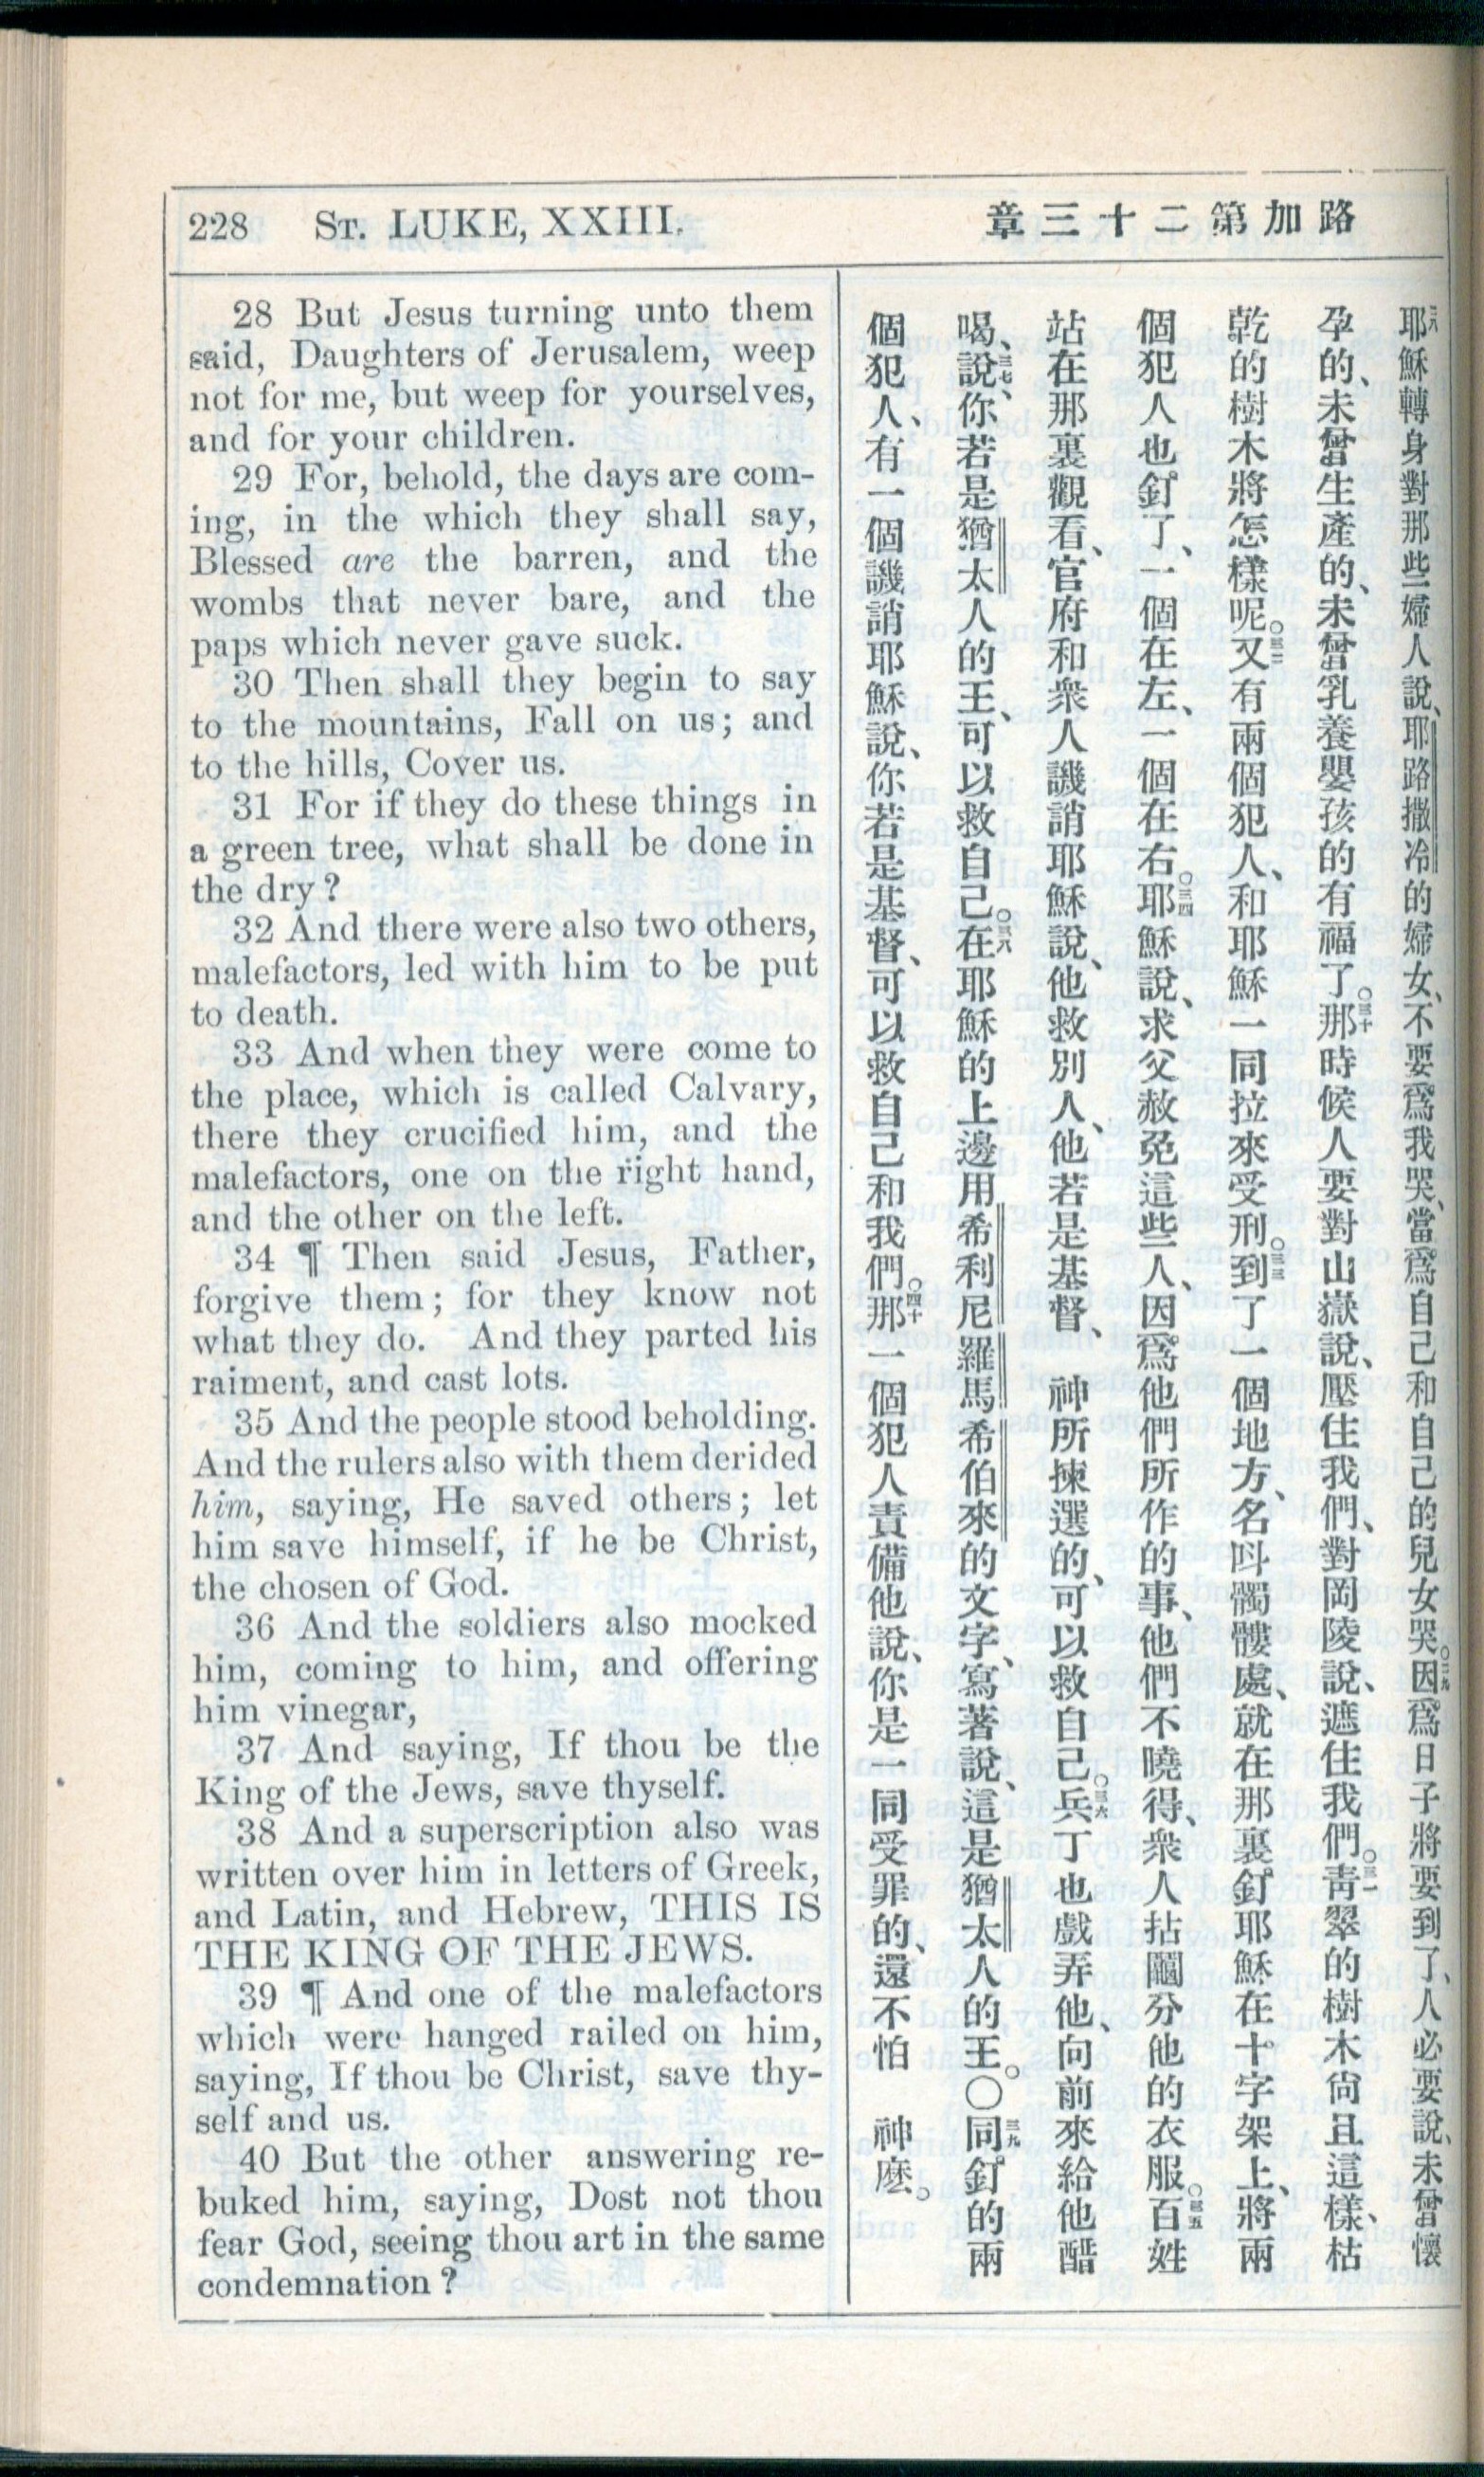 228 ST. LUKE, XXIII.
路加第二十三章
28 But Jesus turning unto them
said, Daughters of Jerusalem, weep
not for me, but weep for yourselves,
and for your children.
29 For, behold, the days are com-
ing, in the which they shall say,
Blessed are the barren, and the
wombs that never bare, and the
paps which never gave suck.
30 Then shall they begin to say
to the mountains, Fall on us; and
to the hills, Cover us.
31 For if they do these things in
a green tree, what shall be done in
the dry?
32 And there were also two others,
malefactors, led with him to be put
to death.
33 And when they were come to
the place, which is called Calvary,
there they crucified him, and the
malefactors, one on the right hand,
and the other on the left.
34 ¶ Then said Jesus, Father,
forgive them; for they know not
what they do. And they parted his
raiment, and cast lots.
35 And the people stood beholding.
And the rulers also with them derided
him, saying, He saved others; let
him save himself, if he be Christ,
the chosen of God.
36 And the soldiers also mocked
him, coming to him, and offering
him vinegar,
37 And saying, If thou be the
King of the Jews, save thyself.
38 And a superscription also was
written over him in letters of Greek,
and Latin, and Hebrew, THIS IS
THE KING OF THE JEWS.
39 ¶ And one of the malefactors
which were hanged railed on him,
saying, If thou be Christ, save thy-
self and us.
40 But the other answering re-
buked him, saying, Dost not thou
fear God, seeing thou art in the same
condemnation?
二八耶穌轉身對那些婦人說、耶路撒冷的婦女、不要爲我哭、當爲自己和自己的兒女哭。二九因爲日子將要到了、人必要說、未曾懷
孕的、未曾生產的、未曾乳養嬰孩的有福了。三十那時候人要對山嶽說、壓住我們、對岡陵說、遮住我們。三一靑翠的樹木尙且這樣、枯
乾的樹木將怎樣呢。三二又有兩個犯人、和耶穌一同拉來受刑。三三到了一個地方、名叫髑髏處、就在那裏釘耶穌在十字架上、將兩
個犯人也釘了、一個在左、一個在右。三四耶穌說、求父赦免這些人、因爲他們所作的事、他們不曉得、衆人拈鬮分他的衣服。三五百姓
站在那裏觀看、官府和衆人譏誚耶穌說、他救別人、他若是基督、 神所揀選的、可以救自己。三六兵丁也戲弄他、向前來給他醋
喝、三七說、你若是猶太人的王、可以救自己。三八在耶穌的上邊用希利尼羅馬希伯來的文字、寫著說、這是猶太人的王。〇三九同釘的兩
個犯人、有一個譏誚耶穌說、你若是基督、可以救自己和我們。四十那一個犯人責備他說、你是一同受罪的、還不怕 神麼。